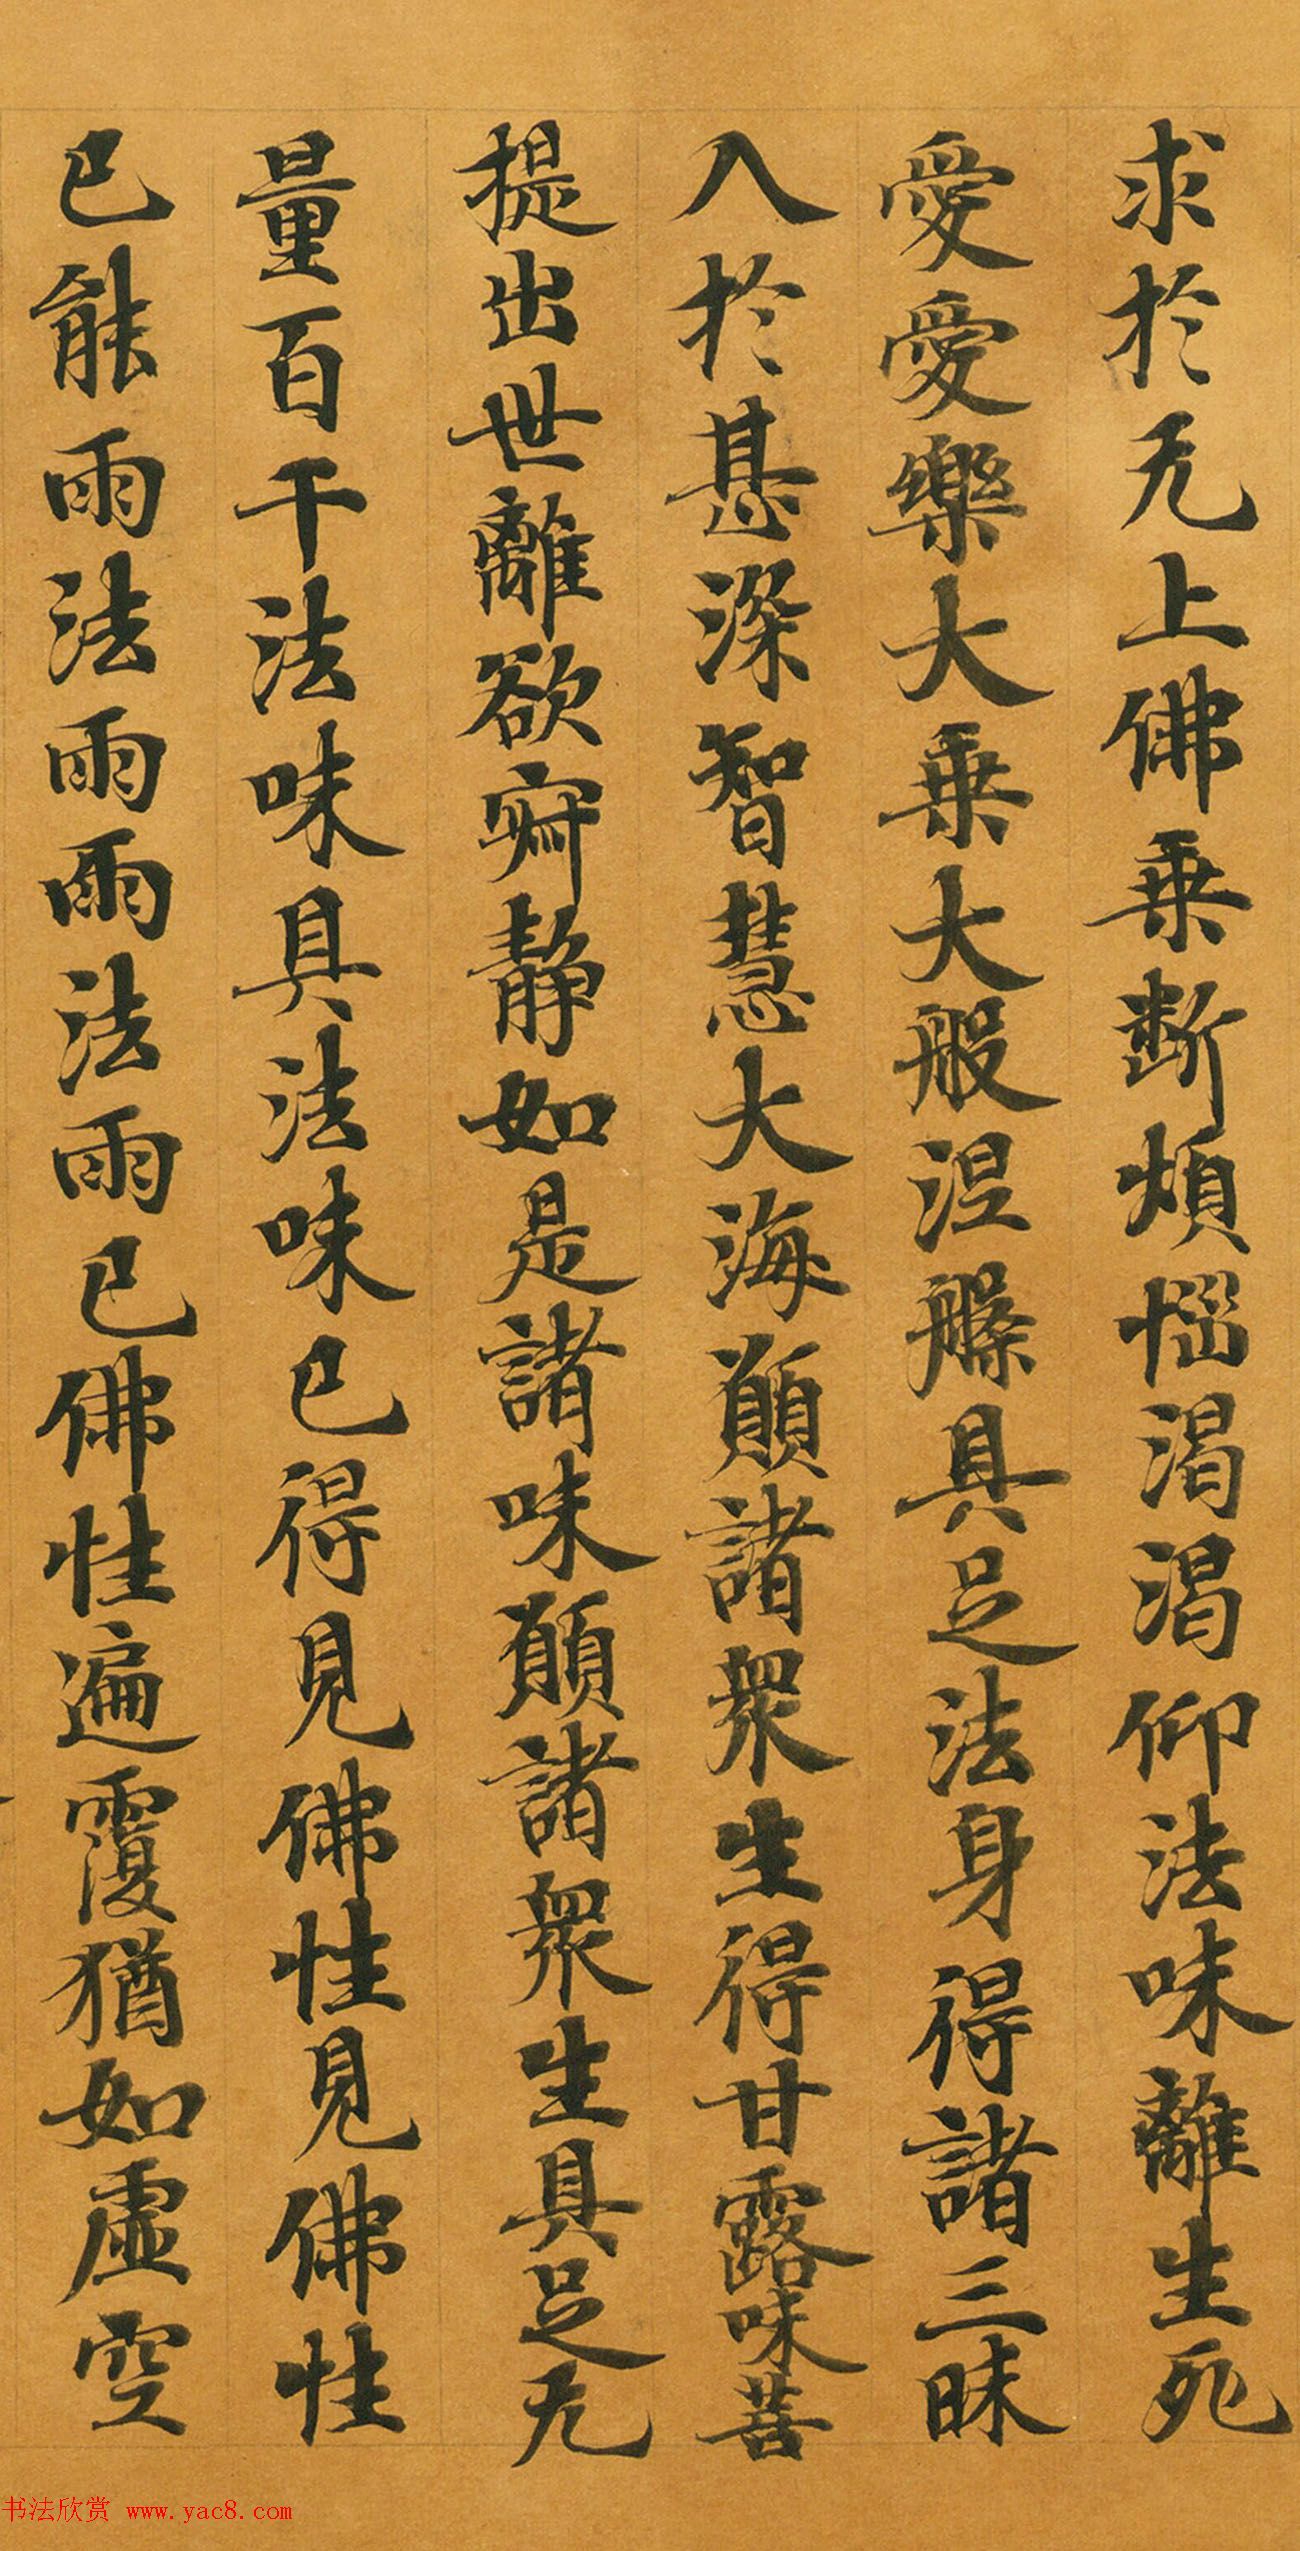 求於无上佛乗斷煩惱渴渴仰法味離生死
愛愛樂大乗大般涅槃具足法身得諸三昧
入於甚深智慧大海願諸衆生得甘露味菩
提出世離欲寂靜如是諸味願諸衆生具足无
量百千法味具法味已得見佛性見佛性
已能雨法雨雨法雨已佛性遍覆猶如虛空
书法欣赏 www.yac8.com